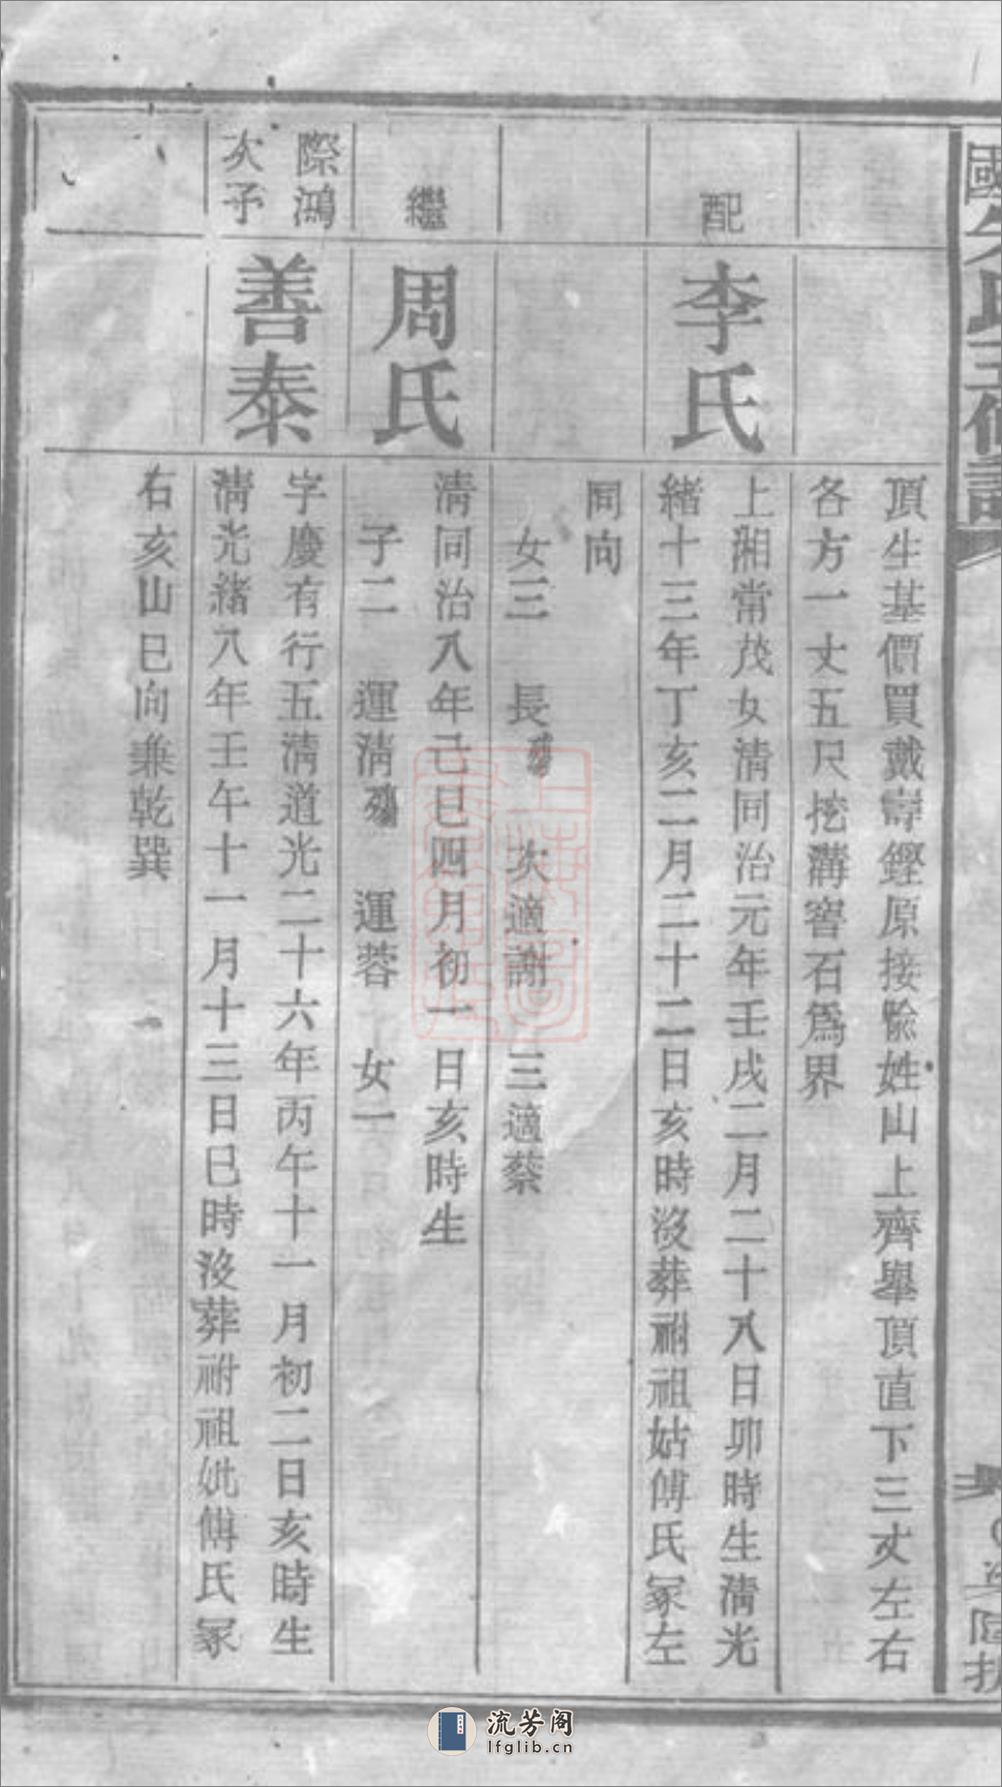 頂生基價買戴嶂鏗原接隃姓山上齊舉頂直下三丈左右
各方一丈五尺挖溝窖石爲界
配
李氏
上湘常茂女清同治元年壬戌二月二十八日卯時生清光
緒十三年丁亥二月二十二日亥時沒葬祔祖姑傅氏冢左
同向
女三 長殤 次適謝 三適蔡
繼
周氏
清同治八年己巳四月初一日亥時生
子二 運清殤 運蓉 女一
際鴻
次子
善泰
字慶有行五清道光二十六年丙午十一月初二日亥時生
清光緒八年壬午十一月十三日巳時沒葬祔祖妣傅氏冢
右亥山巳向兼乾巽
流芳阁
lfglib.cn